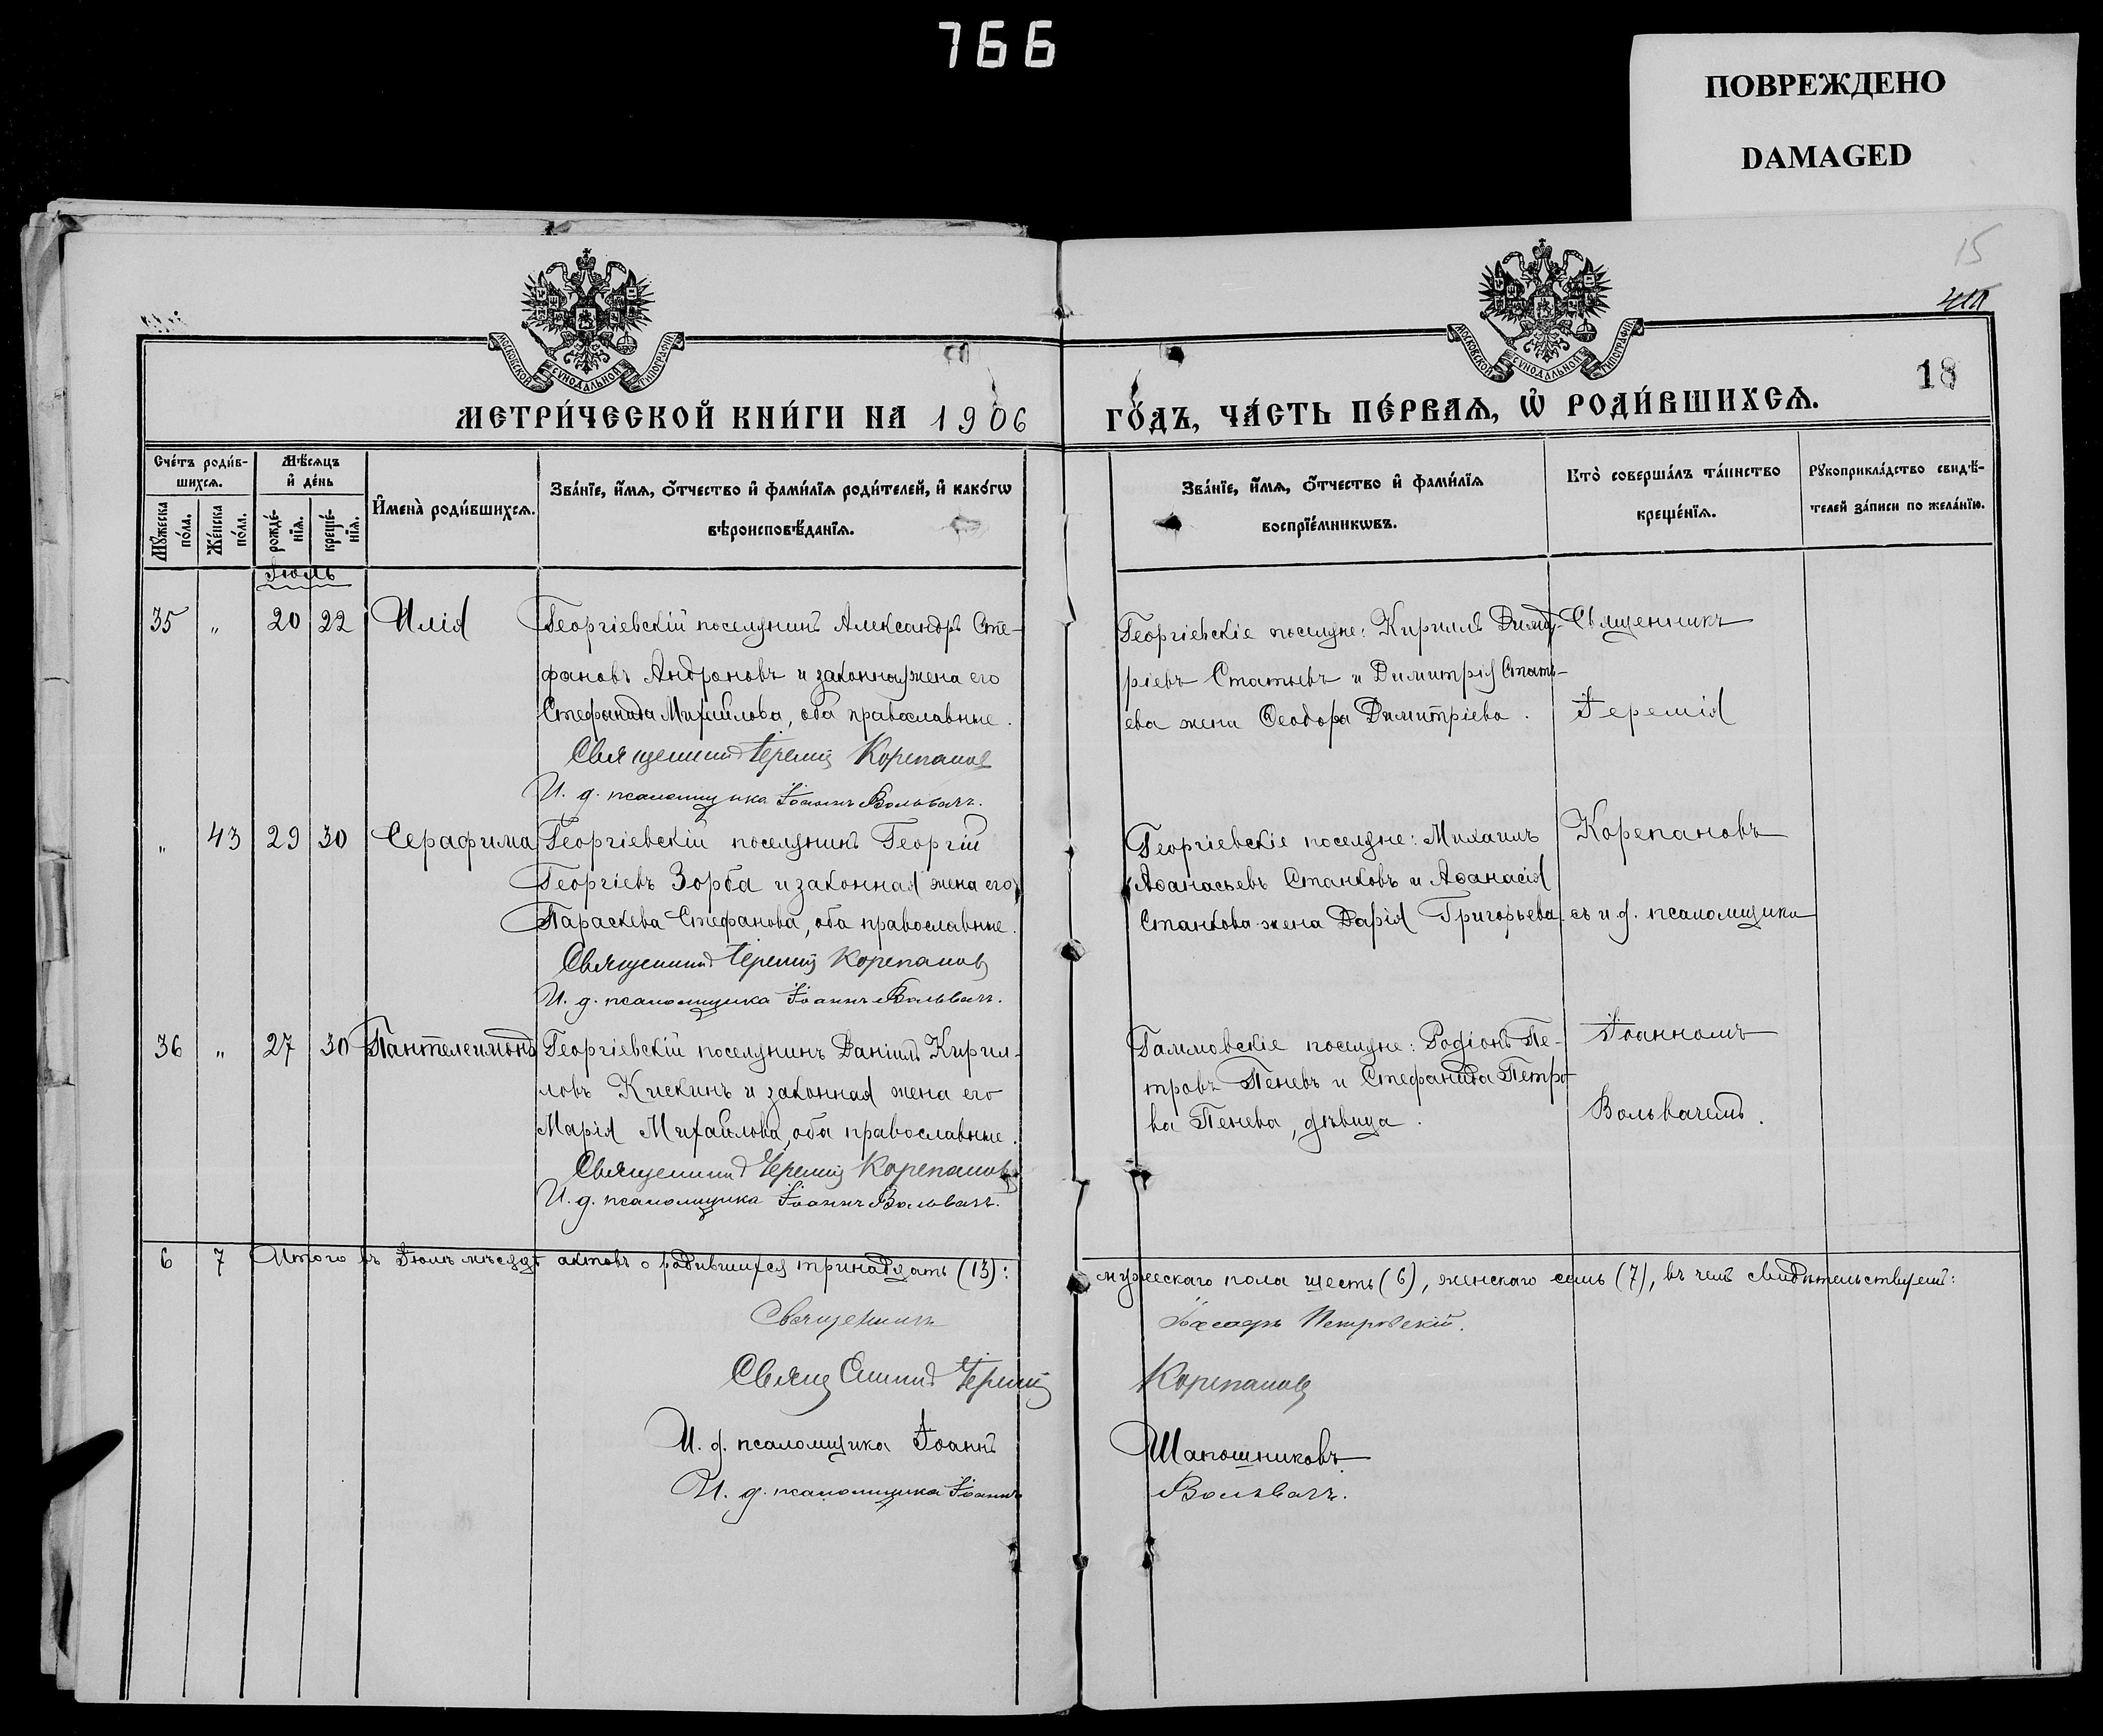 766
ПОВРЕЖДЕНО
DAMAGED
15
18
МОСКОВСКОЙ СѴНОДАЛЬНОЙ ТИПОГРАФІИ
МОСКОВСКОЙ СѴНОДАЛЬНОЙ ТИПОГРАФІИ
МЕТРИ́ЧЕСКОЙ КНИ́ГИ НА 1906
ГО́ДЪ, ЧА́СТЬ ПЕ́РВАѦ, Ѡ҆ РОДИ́ВШИХСѦ.
Сче́тъ роди́в-
шихсѧ.
Мꙋ́жеска по́ла.
Же́нска по́ла.
Мѣ́сѧцъ
и҆ де́нь
рожде́-
нїѧ.
креще́-
нїѧ.
И҆мена̀ роди́вшихсѧ.
Зва́нїе, и҆́мѧ, ѻ҆́тчество и҆ фами́лїѧ роди́телей, и҆ како́гѡ
вѣроисповѣ́данїѧ.
Зва́нїе, и҆́мѧ, ѻ҆́тчество и҆ фами́лїѧ
воспрїе́мникѡвъ.
Кто̀ соверша́лъ та́инство
креще́нїѧ.
Рꙋкоприкла́дство свидѣ́-
телей за́писи по жела́нїю.
Іюль
35 " 20 22 Илія Георгіевскій поселянинъ Александръ Сте-
фановъ Андроновъ и законная жена его
Стефанида Михайлова, оба православные.
Священникъ Іеремія Корепановъ
И. д. псаломщика Іоаннъ Вольвачъ.
Георгіевскіе поселяне: Кириллъ Димит-
ріевъ Статьевъ и Димитрія Стать-
ева жена Ѳеодора Димитріева.
Священникъ
Іеремія
" 43 29 30 Серафима Георгіевскій поселянинъ Георгій
Георгіевъ Зорба и законная жена его
Параскева Стефанова, оба православные.
Священникъ Іеремія Корепановъ
И. д. псаломщика Іоаннъ Вольвачъ.
Георгіевскіе поселяне: Михаилъ
Аѳанасьевъ Станковъ и Аѳанасія
Станкова жена Дарія Григорьева.
Корепановъ
съ и. д. псаломщика
36 " 27 30 Пантелеимонъ Георгіевскій поселянинъ Даніилъ Кирил-
ловъ Кискинъ и законная жена его
Марія Михайлова, оба православные.
Священникъ Іеремія Корепановъ
И. д. псаломщика Іоаннъ Вольвачъ.
поселяне: Родіонъ Пе-
тровъ Пеневъ и Стефанида Петро-
ва Пенева, дѣвица.
Іоанномъ
Вольвачемъ.
6 7 Итого въ Іюлѣ мѣсяцѣ актовъ о родившихся тринадцать (13):
мужескаго пола шесть (6), женскаго семь (7), въ чемъ свидѣтельствуемъ:
Священникъ Петровскій.
Священникъ Іеремія Корепановъ
И. д. псаломщика Іоаннъ Шапошниковъ.
И. д. псаломщика Іоаннъ Вольвачъ.